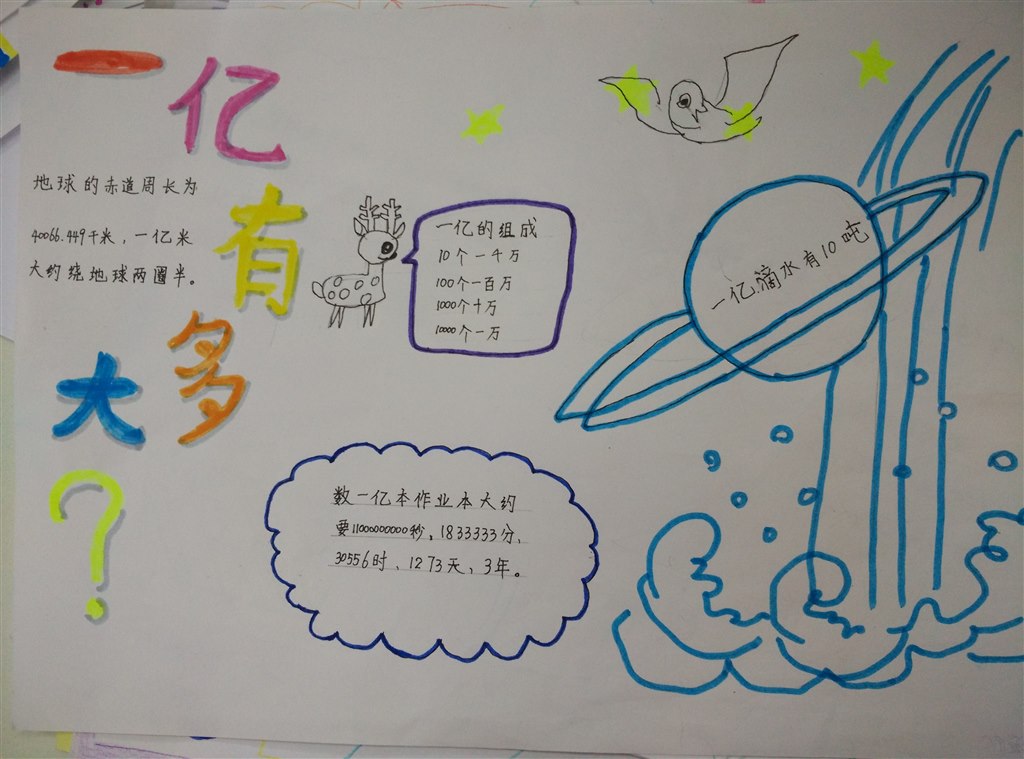 一亿有多大?
地球的赤道周长为
40066.449千米，一亿米
大约绕地球两圈半。
一亿的组成
10个一千万
100个一百万
1000个十万
10000个一万
一亿滴水有10吨
数一亿本作业本大约
要11000000000秒，1833333分、
30556时、1273天、3年。